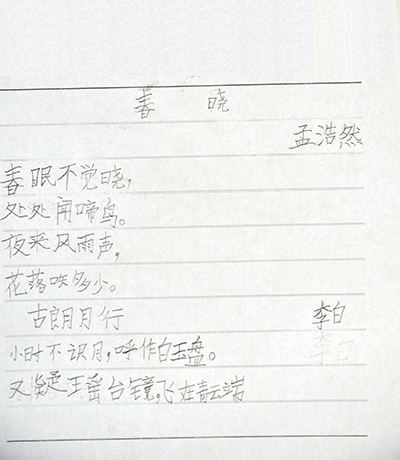 春 晓
孟浩然
春眠不觉晓,
处处闻啼鸟。
夜来风雨声,
花落多少。
古朗月行 李白
小时不识月,呼作白玉盘。 李白
又疑是瑶台镜,飞在青云端